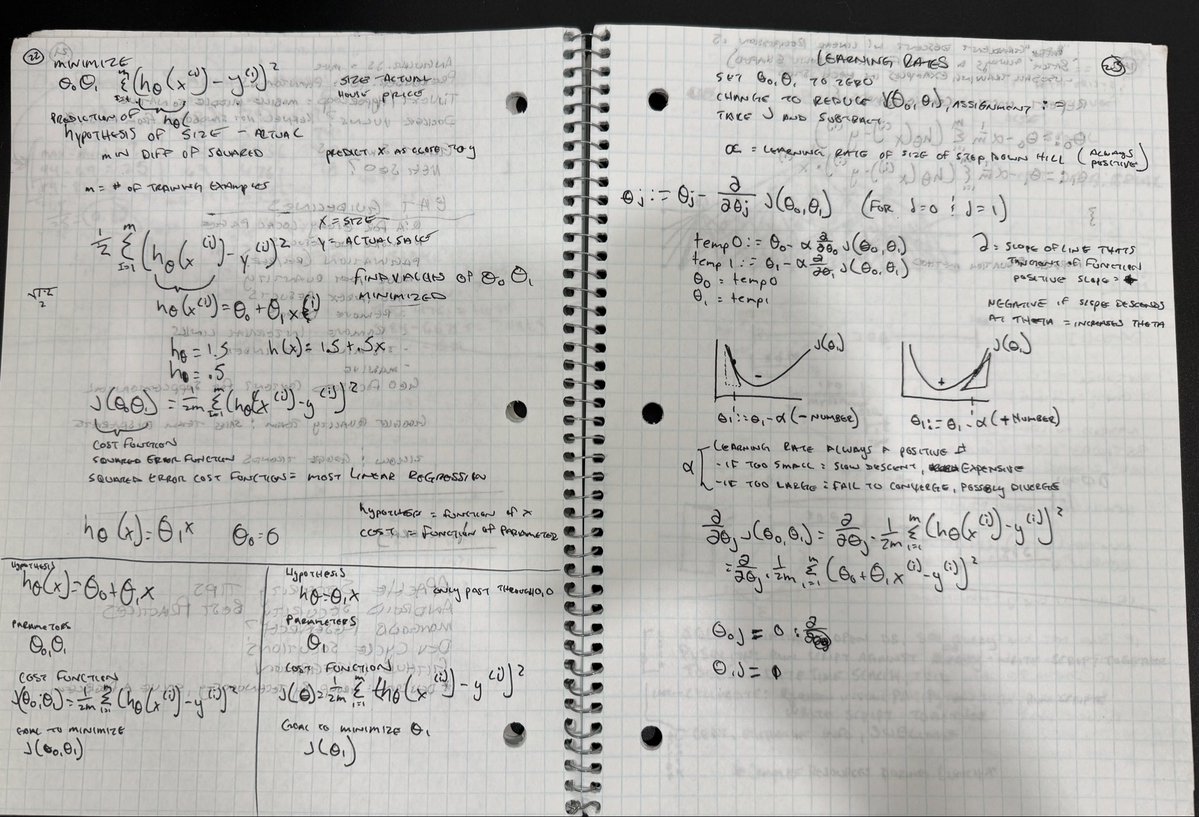 22
MINIMIZE
θ₀θ₁ Σ(hθ(x⁽ⁱ⁾) - y⁽ⁱ⁾)²
SIZE - ACTUAL
HOUSE PRICE
PREDICTION OF hθ(
HYPOTHESIS OF SIZE - ACTUAL
MIN DIFF OF SQUARED
PREDICT X AS CLOSE TO y
m = # OF TRAINING EXAMPLES
X = SIZE
Y = ACTUAL SALES
½ Σ (hθ(x⁽ⁱ⁾) - y⁽ⁱ⁾)²
FIND VALUES OF θ₀ θ₁
MINIMIZED
hθ(x⁽ⁱ⁾) = θ₀ + θ₁x⁽ⁱ⁾
hθ = 1.5 h(x) = 1.5 + .5x
hθ = .5
J(θ₀θ₁) = 1/2m Σ (hθ(x⁽ⁱ⁾) - y⁽ⁱ⁾)²
COST FUNCTION
SQUARED ERROR FUNCTION
SQUARED ERROR COST FUNCTION = MOST LINEAR REGRESSION
HYPOTHESIS = FUNCTION OF X
COST = FUNCTION OF PARAMETER
hθ(x) = θ₁x θ₀ = 0
HYPOTHESIS
hθ(x) = θ₀ + θ₁x
PARAMETERS
θ₀,θ₁
COST FUNCTION
J(θ₀,θ₁) = 1/2m Σ (hθ(x⁽ⁱ⁾) - y⁽ⁱ⁾)²
GOAL TO MINIMIZE
J(θ₀,θ₁)
HYPOTHESIS
hθ = θ₁x ONLY PAST THROUGH 0,0
PARAMETERS
θ₁
COST FUNCTION
J(θ) = 1/2m Σ (hθ(x⁽ⁱ⁾) - y⁽ⁱ⁾)²
GOAL TO MINIMIZE θ₁
J(θ₁)
LEARNING RATES
SET θ₀,θ₁ TO ZERO
CHANGE TO REDUCE J(θ₀,θ₁), ASSIGNMENT :=
TAKE J AND SUBTRACT
α = LEARNING RATE OF SIZE OF STEP DOWN HILL (ALWAYS POSITIVE)
θj := θj - ∂/∂θj J(θ₀,θ₁) (FOR J=0 ; J=1)
temp0 := θ₀ - α ∂/∂θ₀ J(θ₀,θ₁)
temp1 := θ₁ - α ∂/∂θ₁ J(θ₀,θ₁)
θ₀ = temp0
θ₁ = temp1
∂ = SLOPE OF LINE THATS
TANGENT OF FUNCTION
POSITIVE SLOPE = +
NEGATIVE IF SLOPE DESCENDS
AT THETA = INCREASES THETA
J(θ₁)
θ₁ := θ₁ - α (- NUMBER)
J(θ₁)
θ₁ := θ₁ - α (+ NUMBER)
α
LEARNING RATE ALWAYS A POSITIVE #
- IF TOO SMALL = SLOW DESCENT, EXPENSIVE
- IF TOO LARGE = FAIL TO CONVERGE, POSSIBLY DIVERGES
∂/∂θj J(θ₀,θ₁) = ∂/∂θj · 1/2m Σ (hθ(x⁽ⁱ⁾) - y⁽ⁱ⁾)²
= ∂/∂θj · 1/2m Σ (θ₀ + θ₁x⁽ⁱ⁾ - y⁽ⁱ⁾)²
θ₀ j = 0 :
θ₁ j =